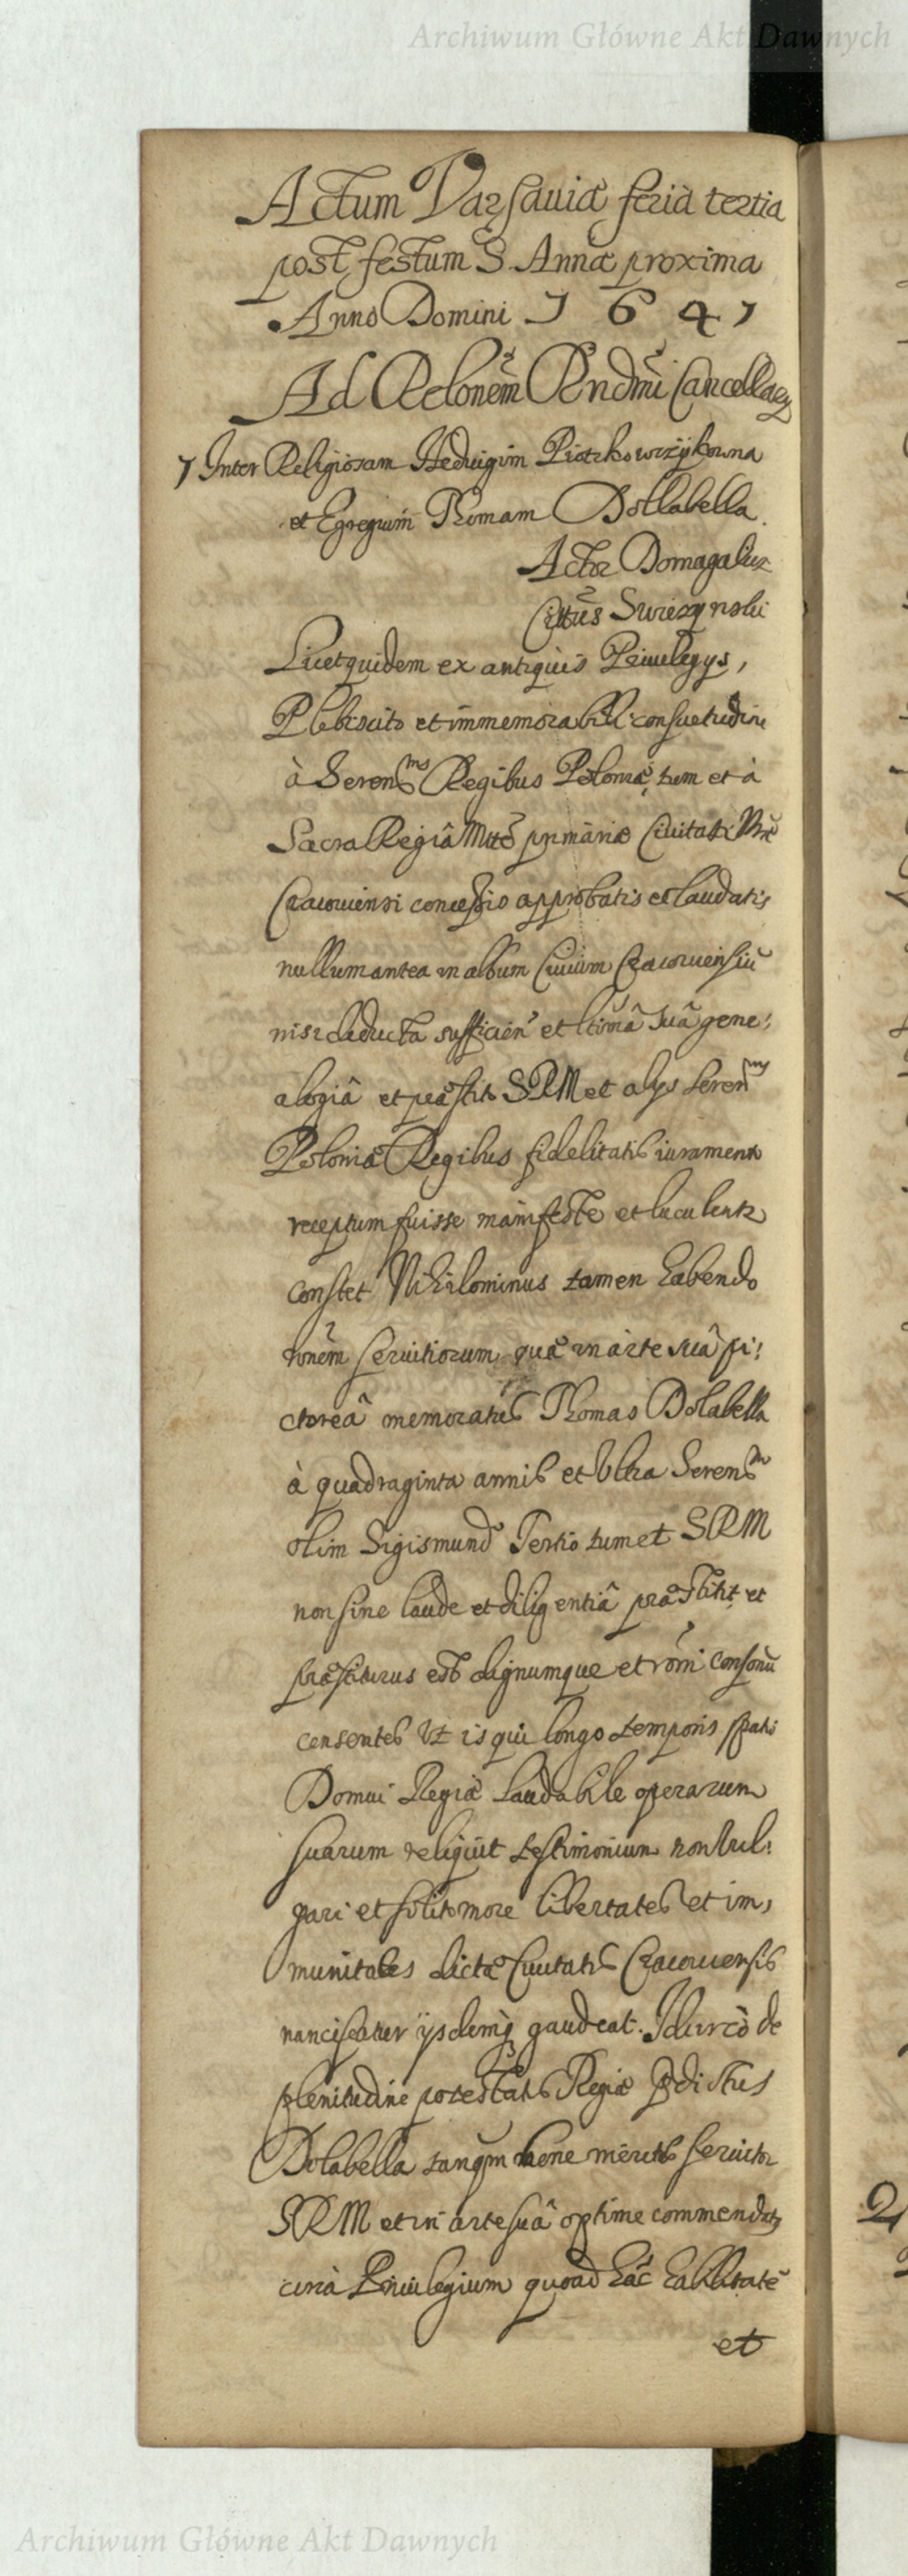 Archiwum Główne Akt Dawnych
Actum Varsauiæ feria tertia
post festum S. Annæ proxima
Anno Domini 1641
Ad Relonem Rndmi Cancellary
1 Inter Religiosam Heduigim
et Egregium Thomam Dollabella
Actor Domagalicz
Cittus Swiezynski
Licet quidem ex antiquis Priuilegys,
Plebiscito et immemorabili consuetudine
à Serenms Regibus Poloniæ, tum et à
Sacra Regiâ Mtte primariæ Ciuitati
Cracouiensi concessis approbatis et laudatis
nullum antea in album Ciuium Cracouiensiũ
nisi deducta sufficien et ltimâ suâ gene:
alogiâ et præstito SRM et alys Seren
Poloniæ Regibus fidelitatis iuramento
receptum fuisse manifeste et luculenter
constet Nihilominus tamen habendo
ronem seruitiorum quæ in arte suâ pi:
ctoreâ memoratus Thomas Dolabella
à quadraginta annis et Vltra Serenm
olim Sigismundo Tertio tum et SRM
non sine laude et diligentiâ præstitit et
præstiturus est dignumque et roni consonũ
censentes Vt is qui longo temporis spatio
Domui Regiæ laudabile operarum
suarum reliquit testimonium non Vul:
gari et solito more libertates et im,
munitates dictæ Ciuitatis Cracouiensis
nanciscatur ÿsdemq gaudeat. Idcircò de
plenitudine potestatis Regiæ pdictus
Dolabella tanqm bene meritus seruitor
SRM et in arte suâ optime commendatus
circà Priuilegium quoad hac habilitatẽ
et
Archiwum Główne Akt Dawnych